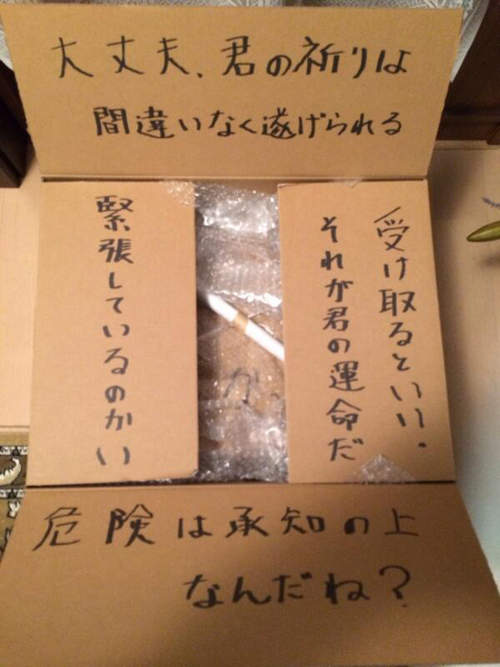 大丈夫、君の祈りは
間違いなく遂げられる
受け取るといい。
それが君の運命だ
緊張しているのかい
危険は承知の上
なんだね?